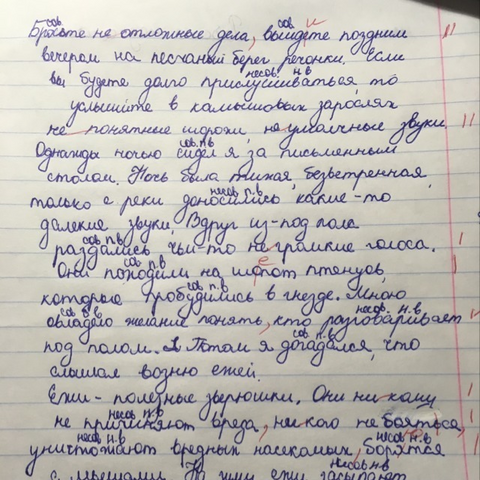 сов и
Бросьте не отложные дела, выйдете поздним
вечером на песчаный берег речонки. Если
несов. н.в
вы будете долго прислушиваться, то
услышите в камышовых зарослях
не понятные шорохи, не умолчные звуки.
сов п.в
Однажды ночью сидел я за письменным
столом. Ночь была тихая, безветренная,
несов п.в
только с реки доносились какие-то
далекие звуки. Вдруг из-под пола
сов п.в
раздались чьи-то не громкие голоса.
сов п.в е
Они походили на шопот птенцов,
сов п.в
которые пробудились в гнезде. Мною
несов. н.в
овладело желание понять, кто разговаривает
сов п.в
под полом. Потом я догадался, что
слышал возню ежей.
Ежи - полезные зверюшки. Они ни кому
несов н.в
не причиняют вреда, ни кого не бояться,
несов н.в несов н.в
уничтожают вредных насекомых, борятся
несов н.в
с мышами. На зиму ежи засыпают